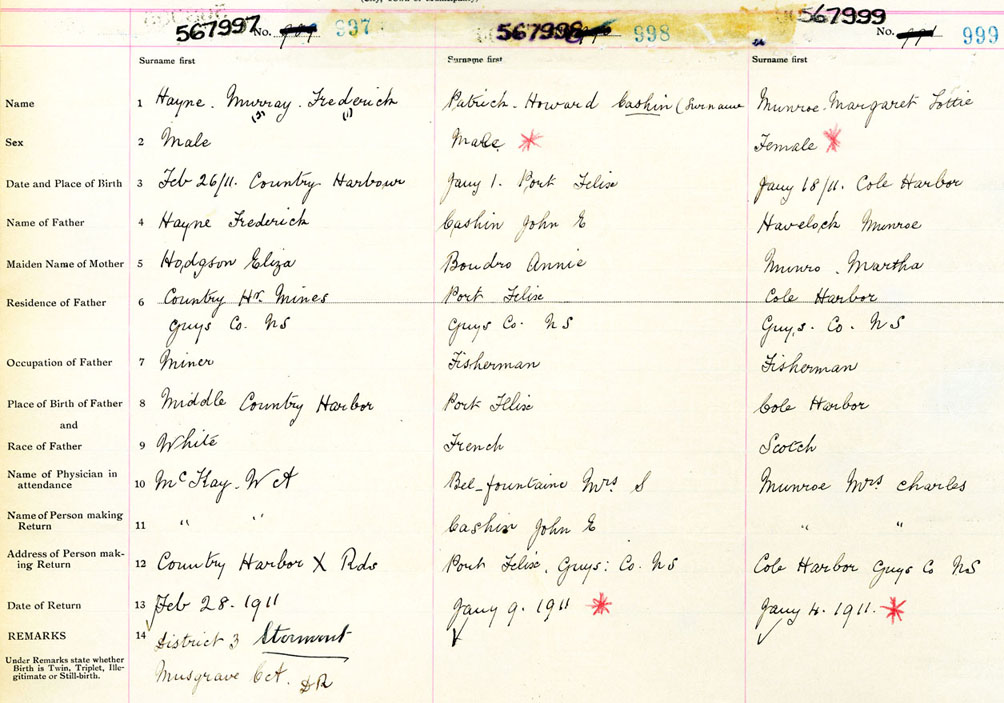 567997 No. 997
567998 998
567999 No. 999
Surname first Surname first Surname first
Name 1 Hayne. Murray. Frederick Patrick. Howard Cashin (Surname Munroe. Margaret Lottie
(2) (1)
Sex 2 Male Male Female
Date and Place of Birth 3 Feb 26/11. Country Harbour Jany 1. Port Felix Jany 18/11. Cole Harbor
Name of Father 4 Hayne Frederick Cashin John E Havelock Munroe
Maiden Name of Mother 5 Hodgson Eliza Boudro Annie Munro. Martha
Residence of Father 6 Country Hr. Mines Port Felix Cole Harbor
Guys Co. NS Guys Co. NS Guys. Co. NS
Occupation of Father 7 Miner Fisherman Fisherman
Place of Birth of Father 8 Middle Country Harbor Port Felix Cole Harbor
and
Race of Father 9 White French Scotch
Name of Physician in
attendance 10 McKay. W A Bel-fountaine Mrs S Munroe Mrs Charles
Name of Person making
Return 11 " " Cashin John E " "
Address of Person mak-
ing Return 12 Country Harbor X Rds Port Felix, Guys: Co. NS Cole Harbor Guys Co NS
Date of Return 13 Feb 28. 1911 Jany 9. 1911 Jany 4. 1911.
REMARKS 14 District 3 Stormont
Under Remarks state whether
Birth is Twin, Triplet, Ille-
gitimate or Still-birth.
Musgrave